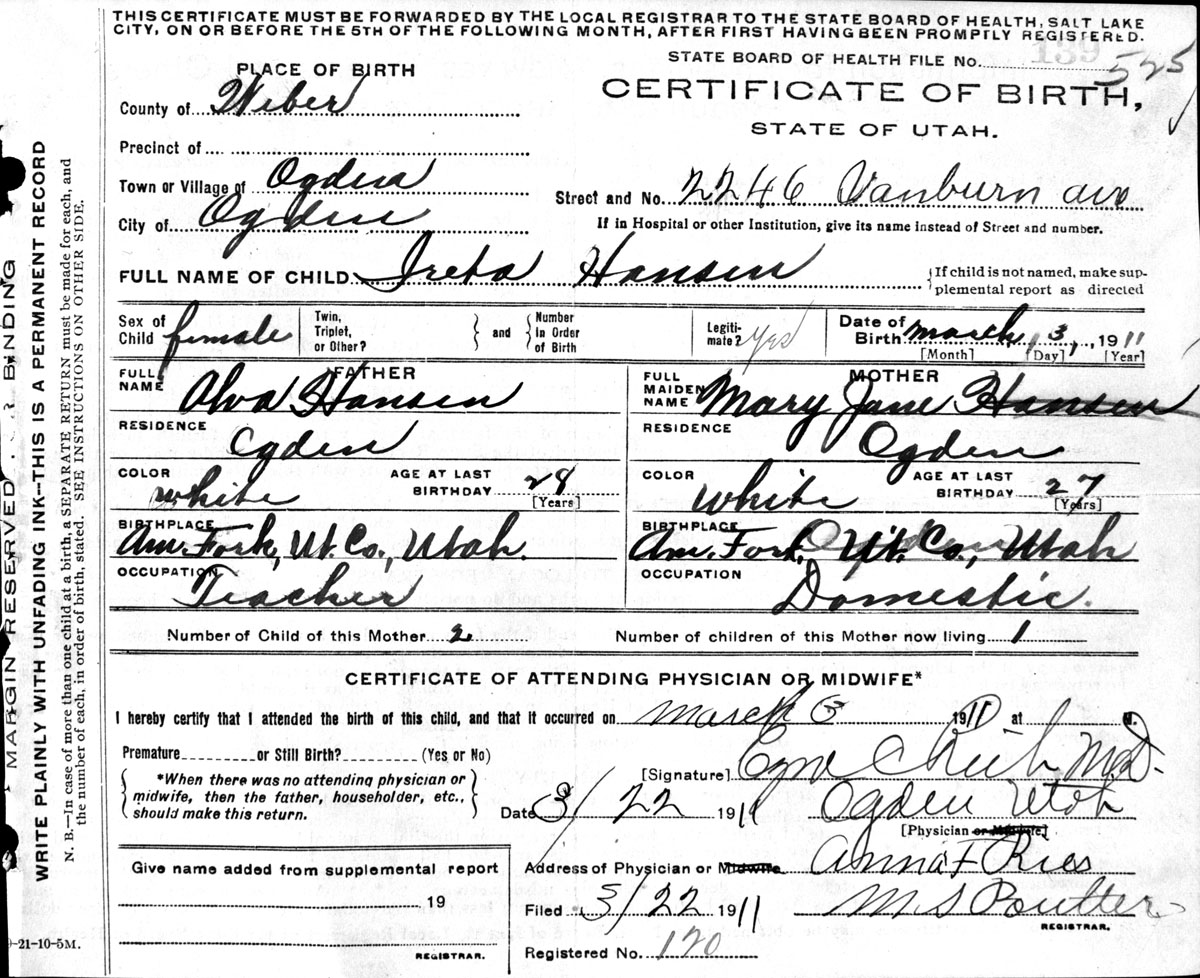 THIS CERTIFICATE MUST BE FORWARDED BY THE LOCAL REGISTRAR TO THE STATE BOARD OF HEALTH, SALT LAKE
CITY, ON OR BEFORE THE 5TH OF THE FOLLOWING MONTH, AFTER FIRST HAVING BEEN PROMPTLY REGISTERED.
139
STATE BOARD OF HEALTH FILE No. 525
PLACE OF BIRTH
CERTIFICATE OF BIRTH,
STATE OF UTAH.
County of Weber
Precinct of
Town or Village of Ogden
Street and No. 2246 Vanburn ave
City of Ogden
If in Hospital or other Institution, give its name instead of Street and number.
FULL NAME OF CHILD Ireta Hansen
{If child is not named, make sup-
plemental report as directed
Sex of Child female
Twin, Triplet, or Other?
and
Number in Order of Birth
Legiti-mate? yes
Date of Birth March 3, 1911
[Month] [Day] [Year]
FATHER
FULL NAME Alva Hansen
RESIDENCE
Ogden
COLOR white
AGE AT LAST BIRTHDAY 28 [Years]
BIRTHPLACE
Am. Fork, Ut. Co., Utah.
OCCUPATION
Teacher
MOTHER
FULL MAIDEN NAME Mary Jane Hansen
RESIDENCE
Ogden
COLOR white
AGE AT LAST BIRTHDAY 27 [Years]
BIRTHPLACE
Am. Fork, Ut. Co., Utah
OCCUPATION
Domestic.
Number of Child of this Mother 2
Number of children of this Mother now living 1
CERTIFICATE OF ATTENDING PHYSICIAN OR MIDWIFE*
I hereby certify that I attended the birth of this child, and that it occurred on March 3 1911 at M.
Premature or Still Birth? (Yes or No)
{*When there was no attending physician or
midwife, then the father, householder, etc.,
should make this return.}
[Signature] M.D.
Date 3/22 1911 Ogden Utah
[Physician or Midwife]
Address of Physician or Midwife Anna F Ries
Filed 3/22 1911 M. S Poulter
REGISTRAR.
Registered No. 120
Give name added from supplemental report
19
REGISTRAR.
9-21-10-5M.
MARGIN RESERVED FOR BINDING
WRITE PLAINLY WITH UNFADING INK—THIS IS A PERMANENT RECORD
N. B.—In case of more than one child at a birth, a SEPARATE RETURN must be made for each, and
the number of each, in order of birth, stated. SEE INSTRUCTIONS ON OTHER SIDE.